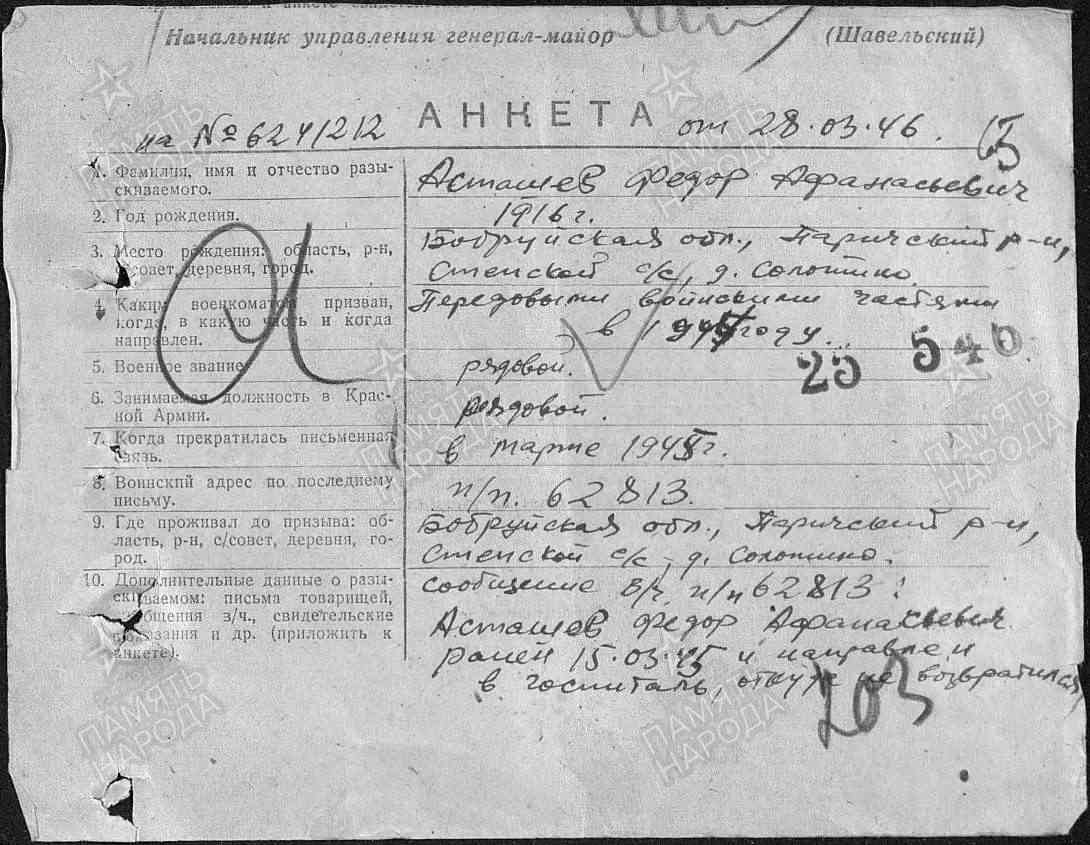 Начальник управления генерал-майор (Шавельский)
АНКЕТА
на № 624/212 от 28.03.46.
1. Фамилия, имя и отчество разыскиваемого. Асташев Федор Афанасьевич
2. Год рождения. 1916 г.
3. Место рождения: область, р-н, с/совет, деревня, город. Бобруйская обл., Паричский р-н,
Стенской с/с, д. Солотино.
4. Каким военкоматом призван, когда, в какую часть и когда направлен. Передовыми войскыми частями
в 1944 году.
25 546
5. Военное звание рядовой.
6. Занимаемая должность в Красной Армии. рядовой.
7. Когда прекратилась письменная связь. в марте 1945 г.
8. Воинский адрес по последнему письму. п/п. 62813.
9. Где проживал до призыва: область, р-н, с/совет, деревня, город. Бобруйская обл., Паричский р-н,
Стенской с/с, д. Солотино.
10. Дополнительные данные о разыскиваемом: письма товарищей, сообщения в/ч., свидетельские показания и др. (приложить к анкете). сообщение в/ч п/п 62813:
Асташев Федор Афанасьевич
ранен 15.03.45 и направлен
в госпиталь, откуда не возвратился
203
ПАМЯТЬ НАРОДА
ПАМЯТЬ НАРОДА
ПАМЯТЬ НАРОДА
ПАМЯТЬ НАРОДА
ПАМЯТЬ НАРОДА
ПАМЯТЬ НАРОДА